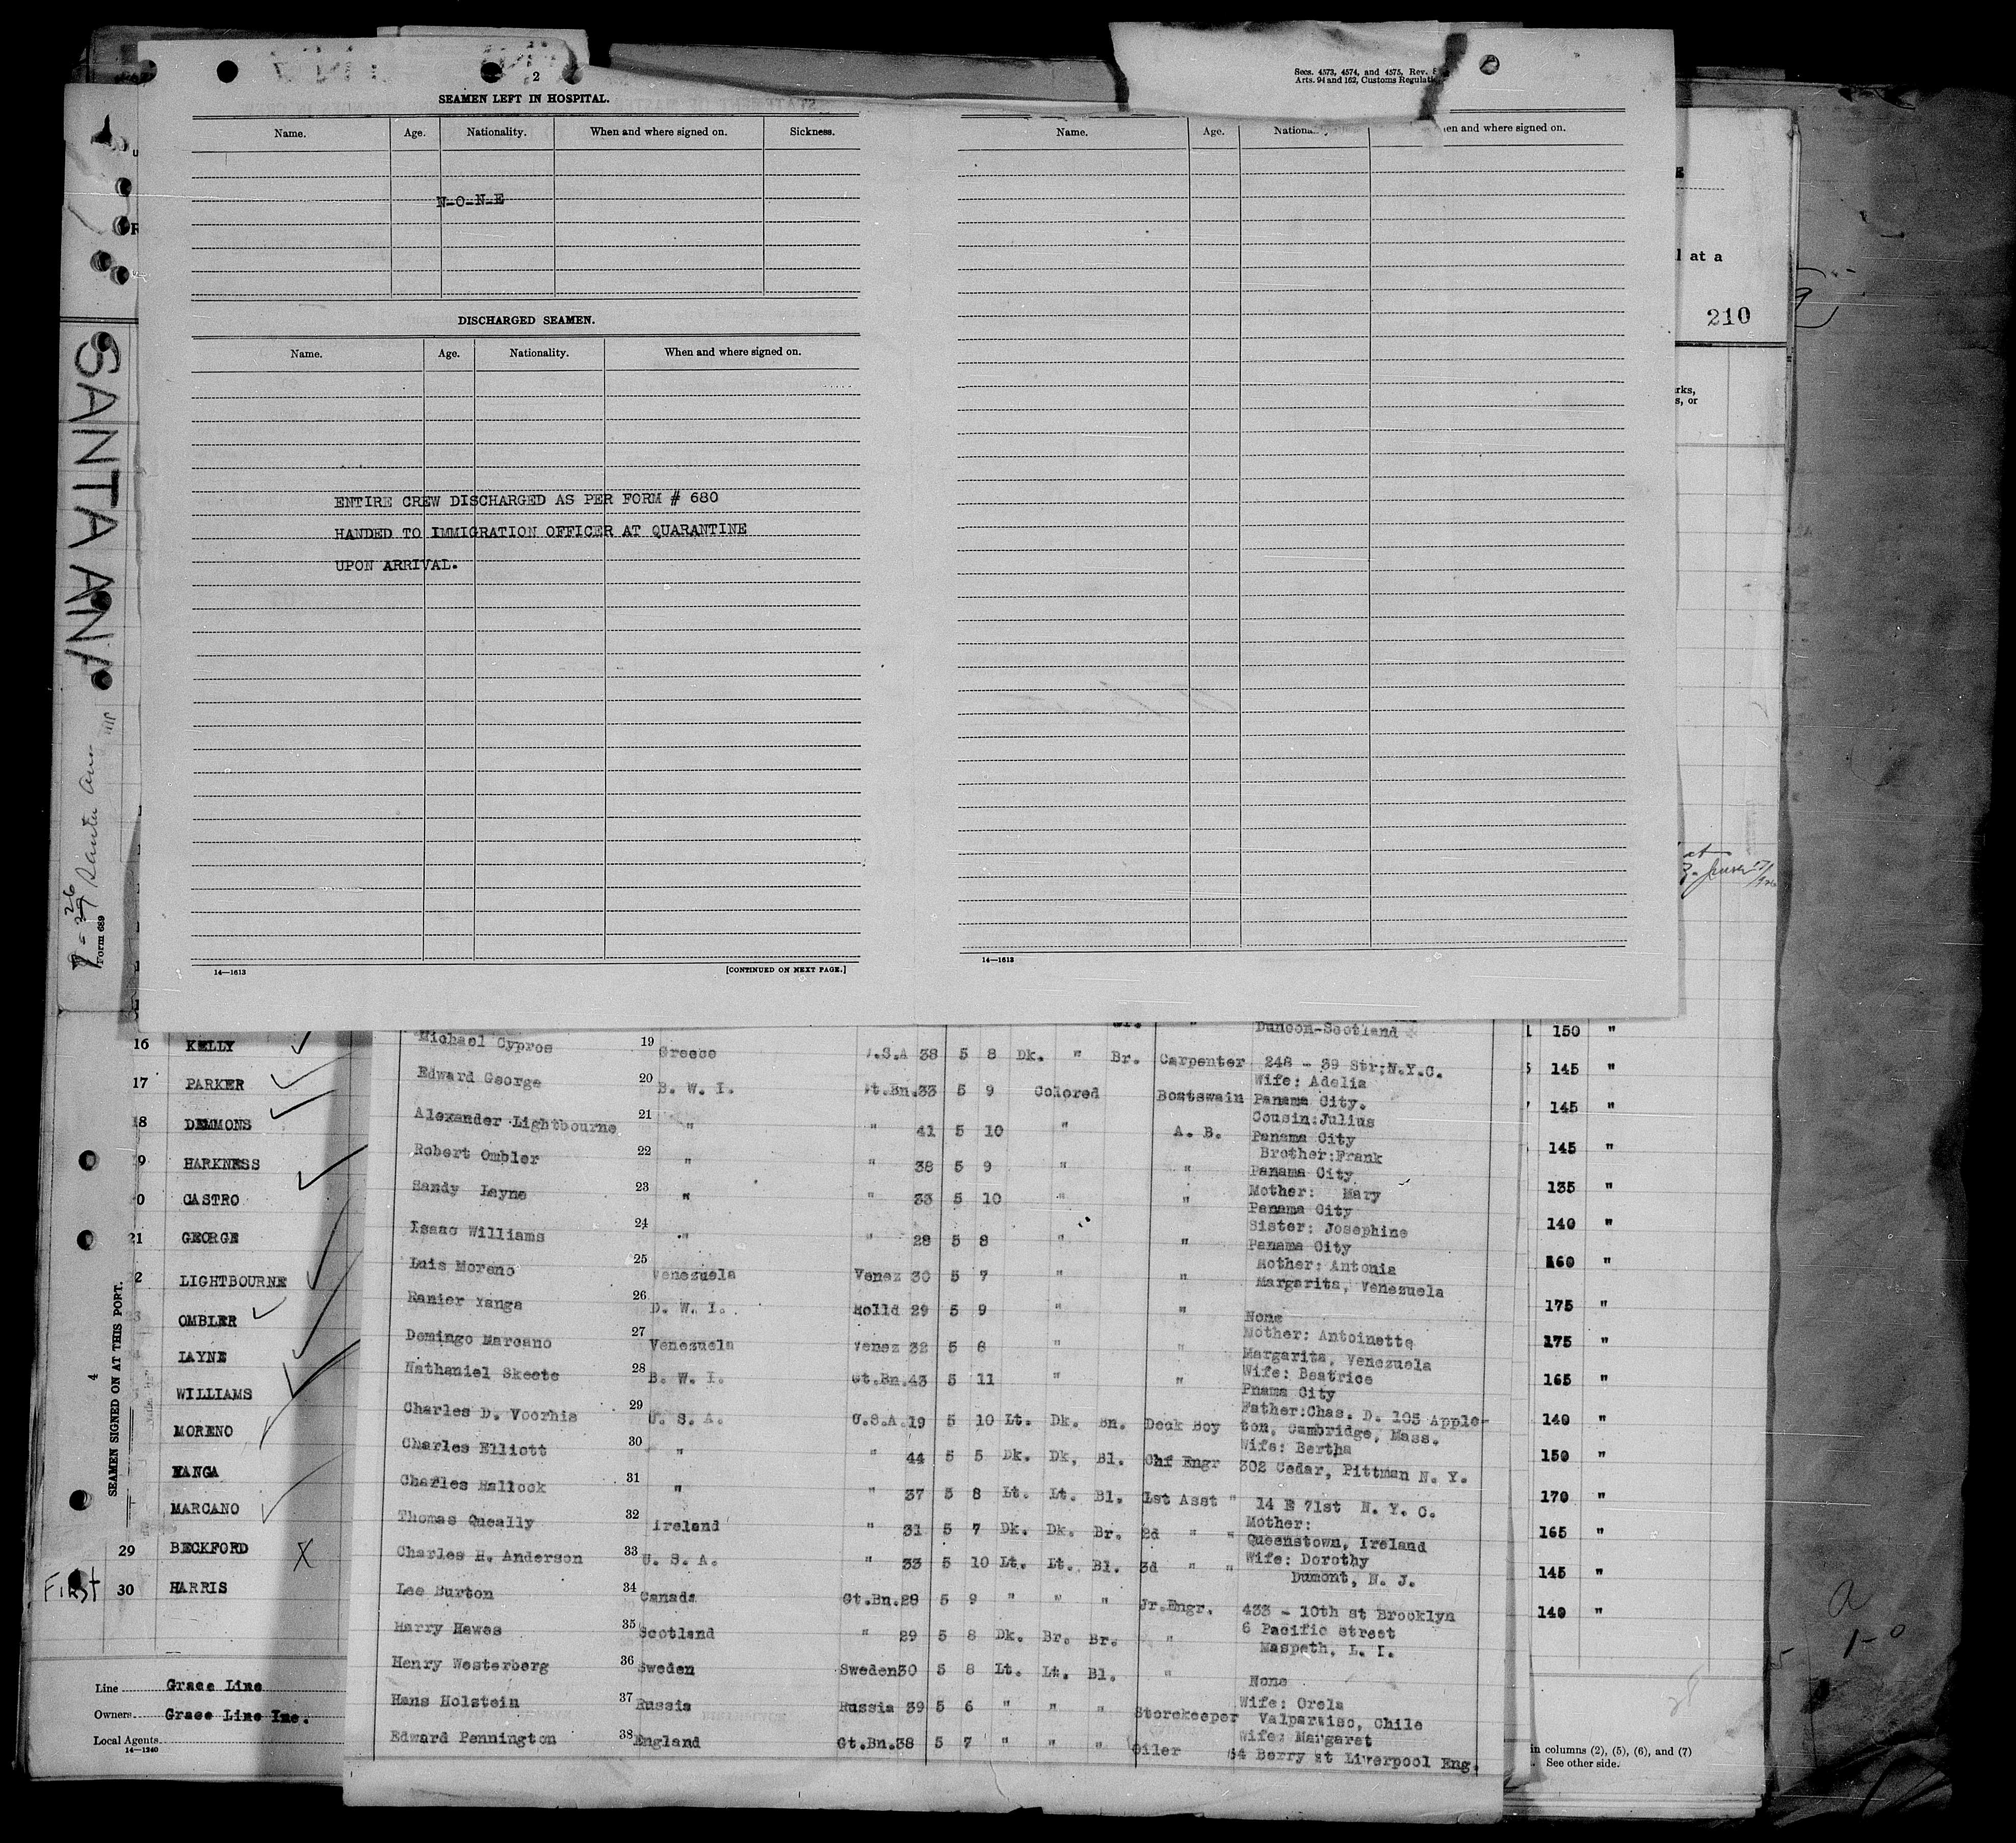 2
SEAMEN LEFT IN HOSPITAL.
Name. Age. Nationality. When and where signed on. Sickness.
N-O-N-E
DISCHARGED SEAMEN.
Name. Age. Nationality. When and where signed on.
ENTIRE CREW DISCHARGED AS PER FORM # 680
HANDED TO IMMIGRATION OFFICER AT QUARANTINE
UPON ARRIVAL.
14—1613 [CONTINUED ON NEXT PAGE.]
Secs. 4573, 4574, and 4575, Rev.
Arts. 94 and 162, Customs
Name. Age. en and where signed on.
14—1613
l at a
210
rks,
s, or
SANTA AN
Santa Ana
Form 689
4
SEAMEN SIGNED ON AT THIS PORT.
16 KELLY
17 PARKER
18 DEMMONS
9 HARKNESS
0 CASTRO
21 GEORGE
2 LIGHTBOURNE
OMBLER
LAYNE
WILLIAMS
MORENO
XANGA
MARCANO
29 BECKFORD X
FIRST 30 HARRIS
Line Grace Line
Owners Grace Line Inc.
Local Agents
14—1240
Duncon-Scotland
Michael Cypros 19 Greece U.S.A 38 5 8 Dk. " Br. Carpenter 248 - 39 Str:N.Y.C.
Edward George 20 B. W. I. Gt.Bn.33 5 9 Colored Boatswain Wife: Adelia
Panama City.
Alexander Lightbourne 21 " " 41 5 10 " A. B. Cousin:Julius
Panama City
Robert Ombler 22 " " 38 5 9 " " Brother:Frank
Panama City
Sandy Layne 23 " " 33 5 10 " " Mother: Mary
Panama City
Isaac Williams 24 " " 28 5 8 " " Sister: Josephine
Panama City
Luis Moreno 25 Venezuela Venez 30 5 7 " " Mother: Antonia
Margarita, Venezuela
Ranier Xanga 26 D. W. I. Holld 29 5 9 " " None
Domingo Marcano 27 Venezuela Venez 32 5 8 " " Mother: Antoinette
Margarita, Venezuela
Nathaniel Skeete 28 B. W. I. Gt.Bn.43 5 11 " " Wife: Beatrice
Pnama City
Charles D. Voorhis 29 U. S. A. U.S.A.19 5 10 Lt. Dk. Bn. Deck Boy Father:Chas. D. 105 Apple-
ton, Cambridge, Mass.
Charles Elliott 30 " " 44 5 5 Dk. Dk, Bl. Chf Engr Wife: Bertha
302 Cedar, Pittman N. Y.
Charles Hallock 31 " " 37 5 8 Lt. Lt. Bl. 1st Asst " 14 E 71st N. Y. C.
Thomas Queally 32 Ireland " 31 5 7 Dk. Dk. Br. 2d " " Mother:
Queenstown, Ireland
Charles H. Anderson 33 U. S. A. " 33 5 10 Lt. Lt. Bl. 3d " " Wife: Dorothy
Dumont, N. J.
Lee Burton 34 Canada Gt.Bn.28 5 9 " " " Jr.Engr. 433 - 10th st Brooklyn
Harry Hawes 35 Scotland " 29 5 8 Dk. Br. Br. " 6 Pacific street
Maspeth, L. I.
Henry Westerberg 36 Sweden Sweden30 5 8 Lt. Lt. Bl. " None
Hans Holstein 37 Russia Russia 39 5 6 " " " Storekeeper Wife: Orela
Valpartiso, Chile
Edward Pennington 38 England Gt.Bn.38 5 7 " " " Oiler Wife: Margaret
64 Berry st Liverpool Eng.
150 "
145 "
145 "
145 "
135 "
140 "
160 "
175 "
175 "
165 "
140 "
150 "
170 "
165 "
145 "
140 "
in columns (2), (5), (6), and (7)
See other side.